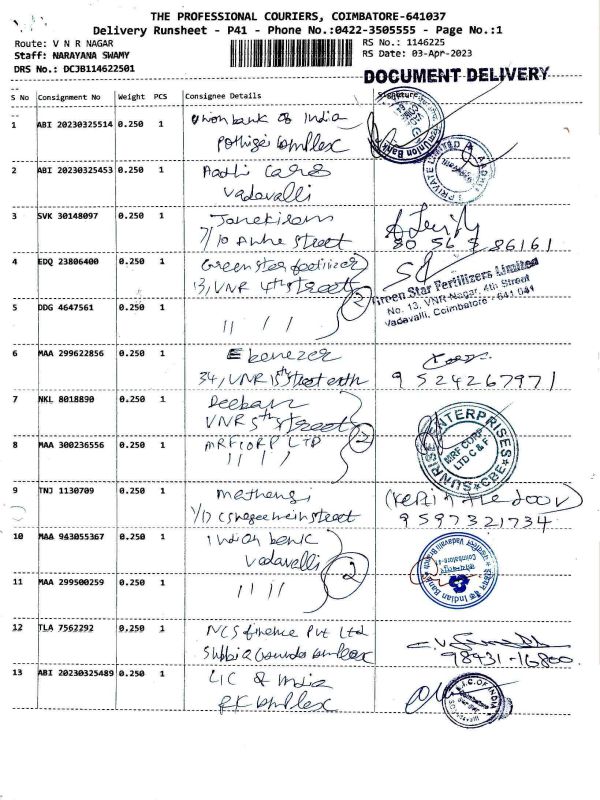 THE PROFESSIONAL COURIERS, COIMBATORE-641037
Delivery Runsheet - P41 - Phone No.:0422-3505555 - Page No.:1
Route: V N R NAGAR
RS No.: 1146225
Staff: NARAYANA SWAMY
RS Date: 03-Apr-2023
DRS No.: DCJB114622501
DOCUMENT DELIVERY
S No Consignment No Weight PCS Consignee Details Signature
1 ABI 20230325514 0.250 1 Union bank of India
complex
2 ABI 20230325453 0.250 1 Aadhi Cars
Vadavalli
3 SVK 30148097 0.250 1 Janakiram
7/10 Anna Street
80 56 7 86161
4 EDQ 23806400 0.250 1 Green star fertilizer
13, VNR 4th street
2
Green Star Fertilizers Limited
No. 13, VNR Nagar, 4th Street
Vadavalli, Coimbatore - 641 041
5 DDG 4647561 0.250 1 11 / /
6 MAA 299622856 0.250 1 Ebenezer
34, VNR
9524267971
7 NKL 8018890 0.250 1 Deeban
VNR 5th street
MRF CORP LTD
2
SUNRISE ENTERPRISES CBE
MRF CORP
LTD C & F
8 MAA 300236556 0.250 1 1 1 / /
9 TNJ 1130709 0.250 1 Mathangi
1/17
(Kept in the door)
9597321734
10 MAA 943055367 0.250 1 Indian bank
Vadavalli
2
Indian Bank
11 MAA 299500259 0.250 1 11 / /
12 TLA 7562292 0.250 1 NCS finence Pvt Ltd
complex
98431-16800
13 ABI 20230325489 0.250 1 LIC of India
RK complex
L.I.C. OF INDIA